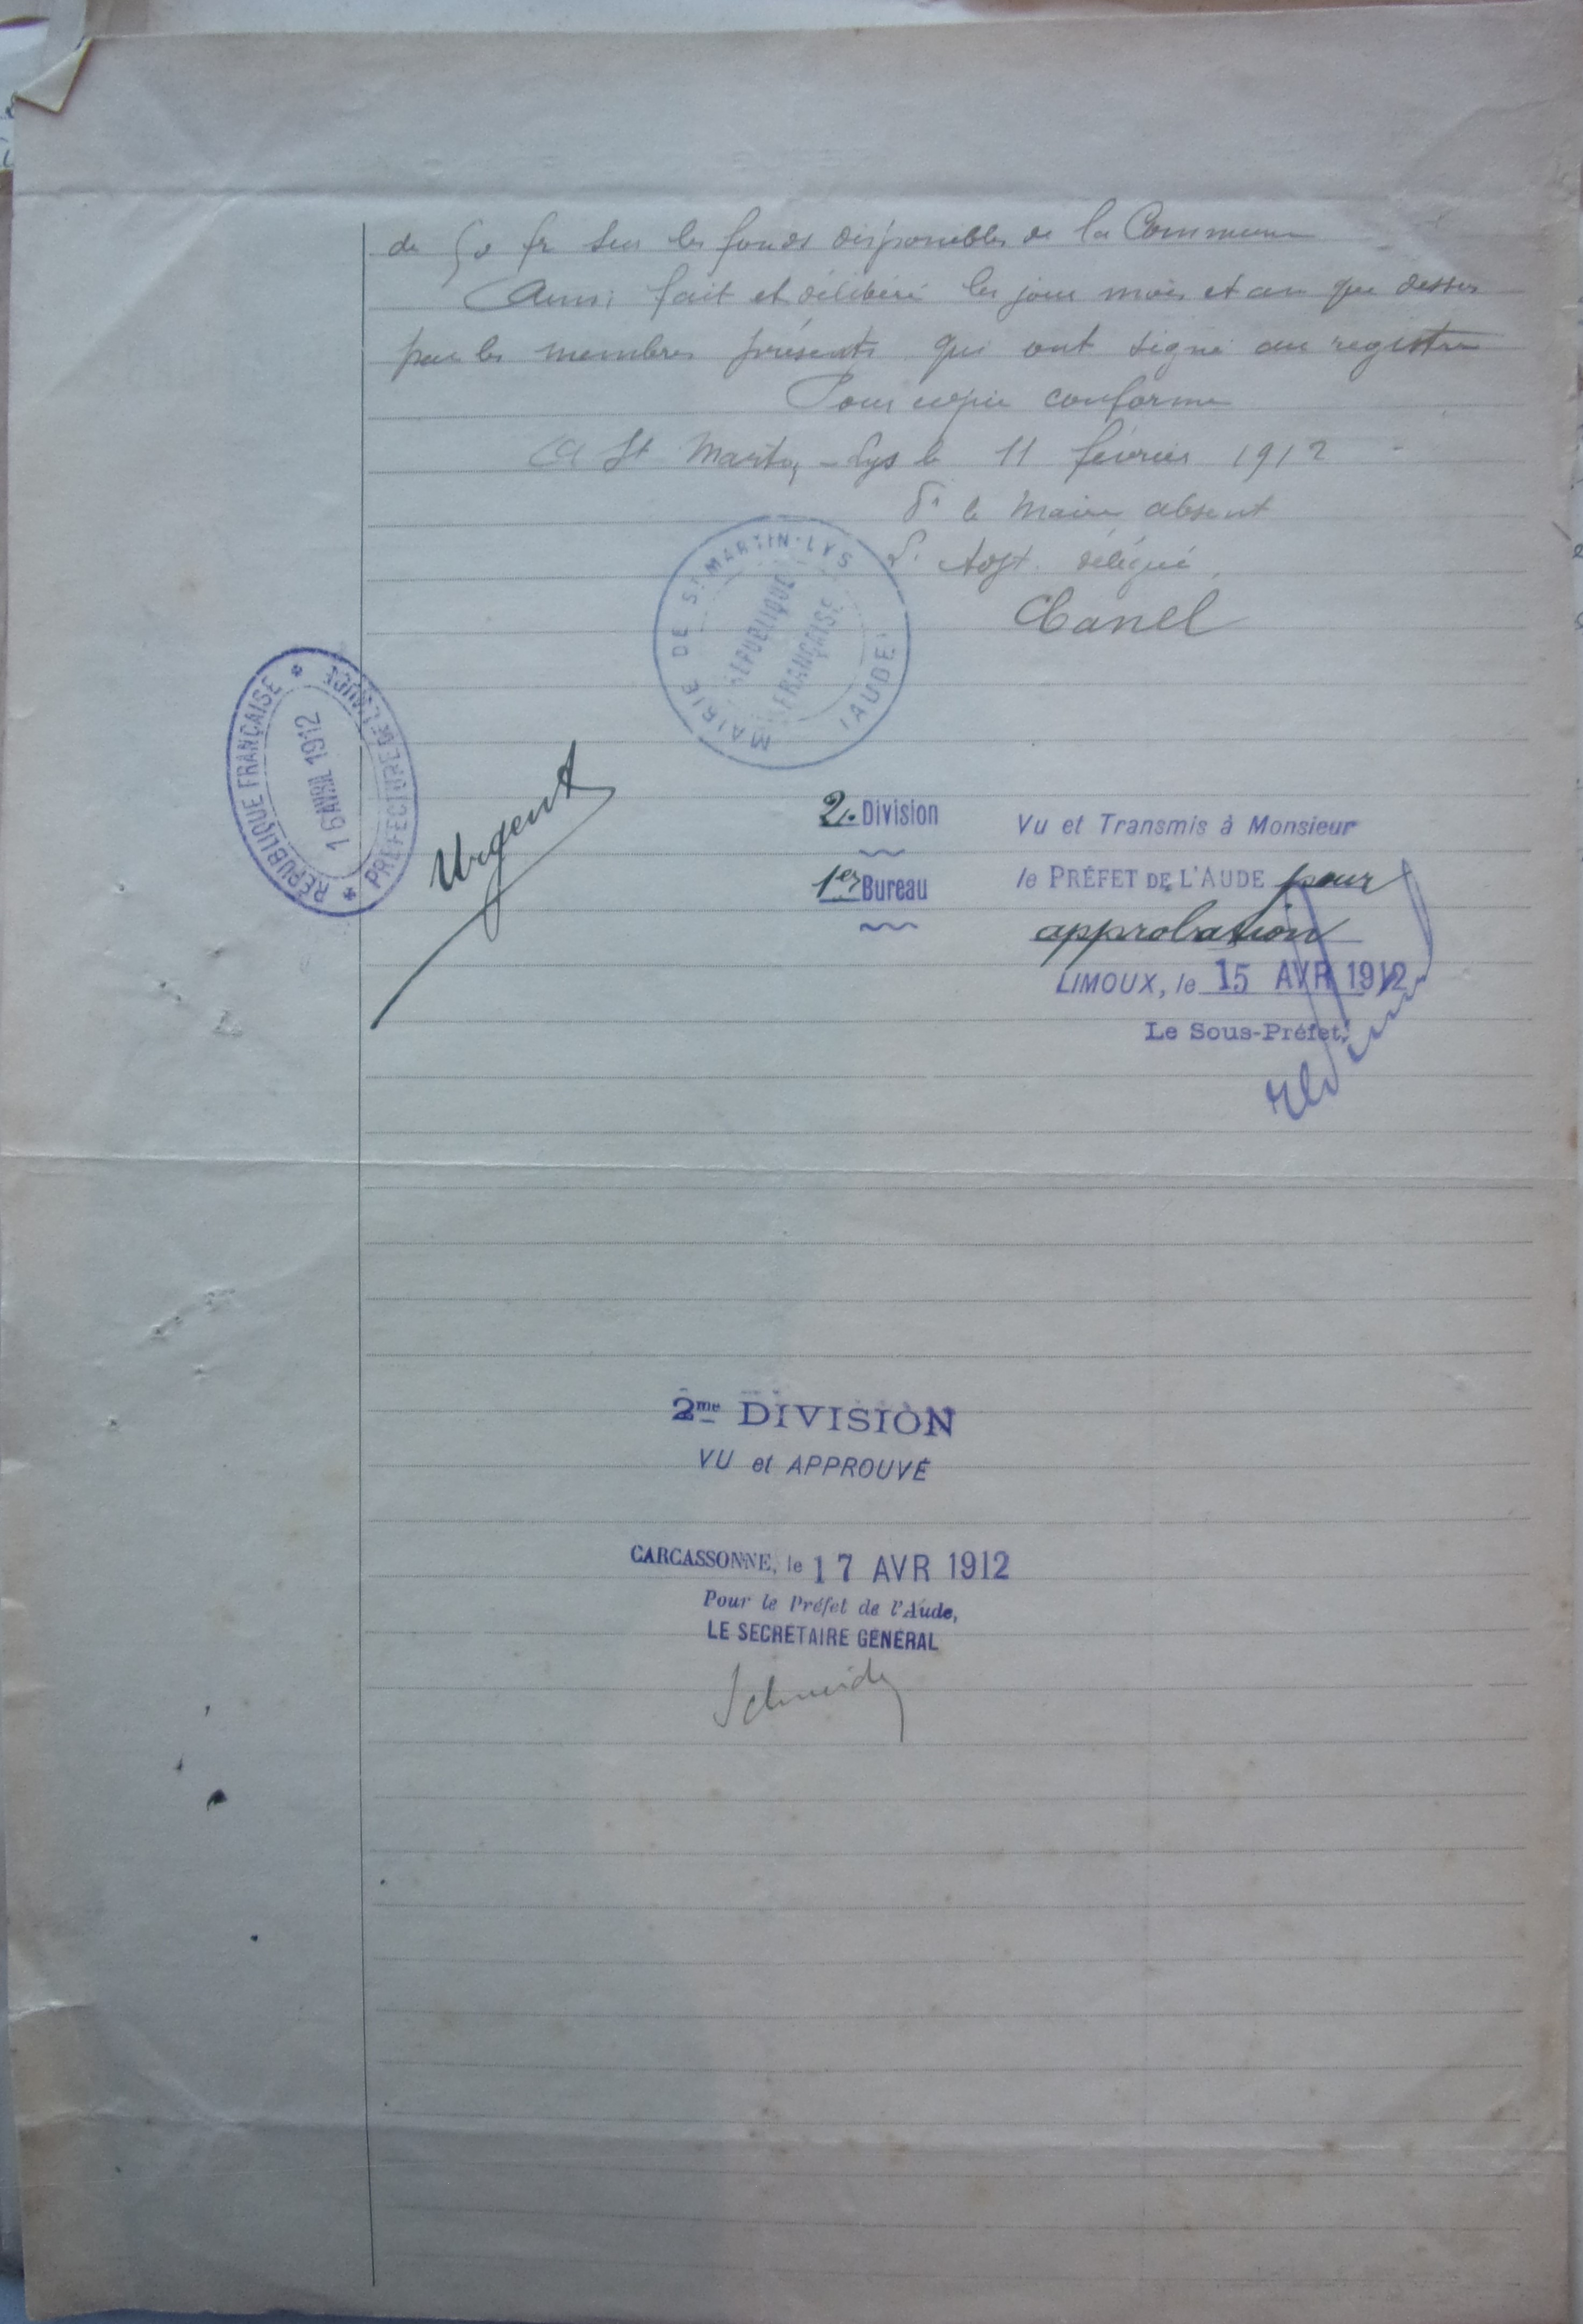 de 50 fr sur les fonds disponibles de la Commune
Ainsi fait et délibéré les jour mois et an que dessus
par les membres présents qui ont signé au registre
Pour copie conforme
A St Martin-Lys le 11 février 1912
Pr le Maire absent
L' Adjt délégué,
Canel
MAIRIE DE ST MARTIN-LYS
(AUDE)
RÉPUBLIQUE
FRANÇAISE
RÉPUBLIQUE FRANÇAISE
PRÉFECTURE DE L'AUDE
16 AVRIL 1912
Urgent
2e Division
1er Bureau
Vu et Transmis à Monsieur
le PRÉFET DE L'AUDE pour
approbation
LIMOUX, le 15 AVR 1912
Le Sous-Préfet,
2me DIVISION
VU et APPROUVÉ
CARCASSONNE, le 17 AVR 1912
Pour le Préfet de l'Aude,
LE SECRÉTAIRE GÉNÉRAL